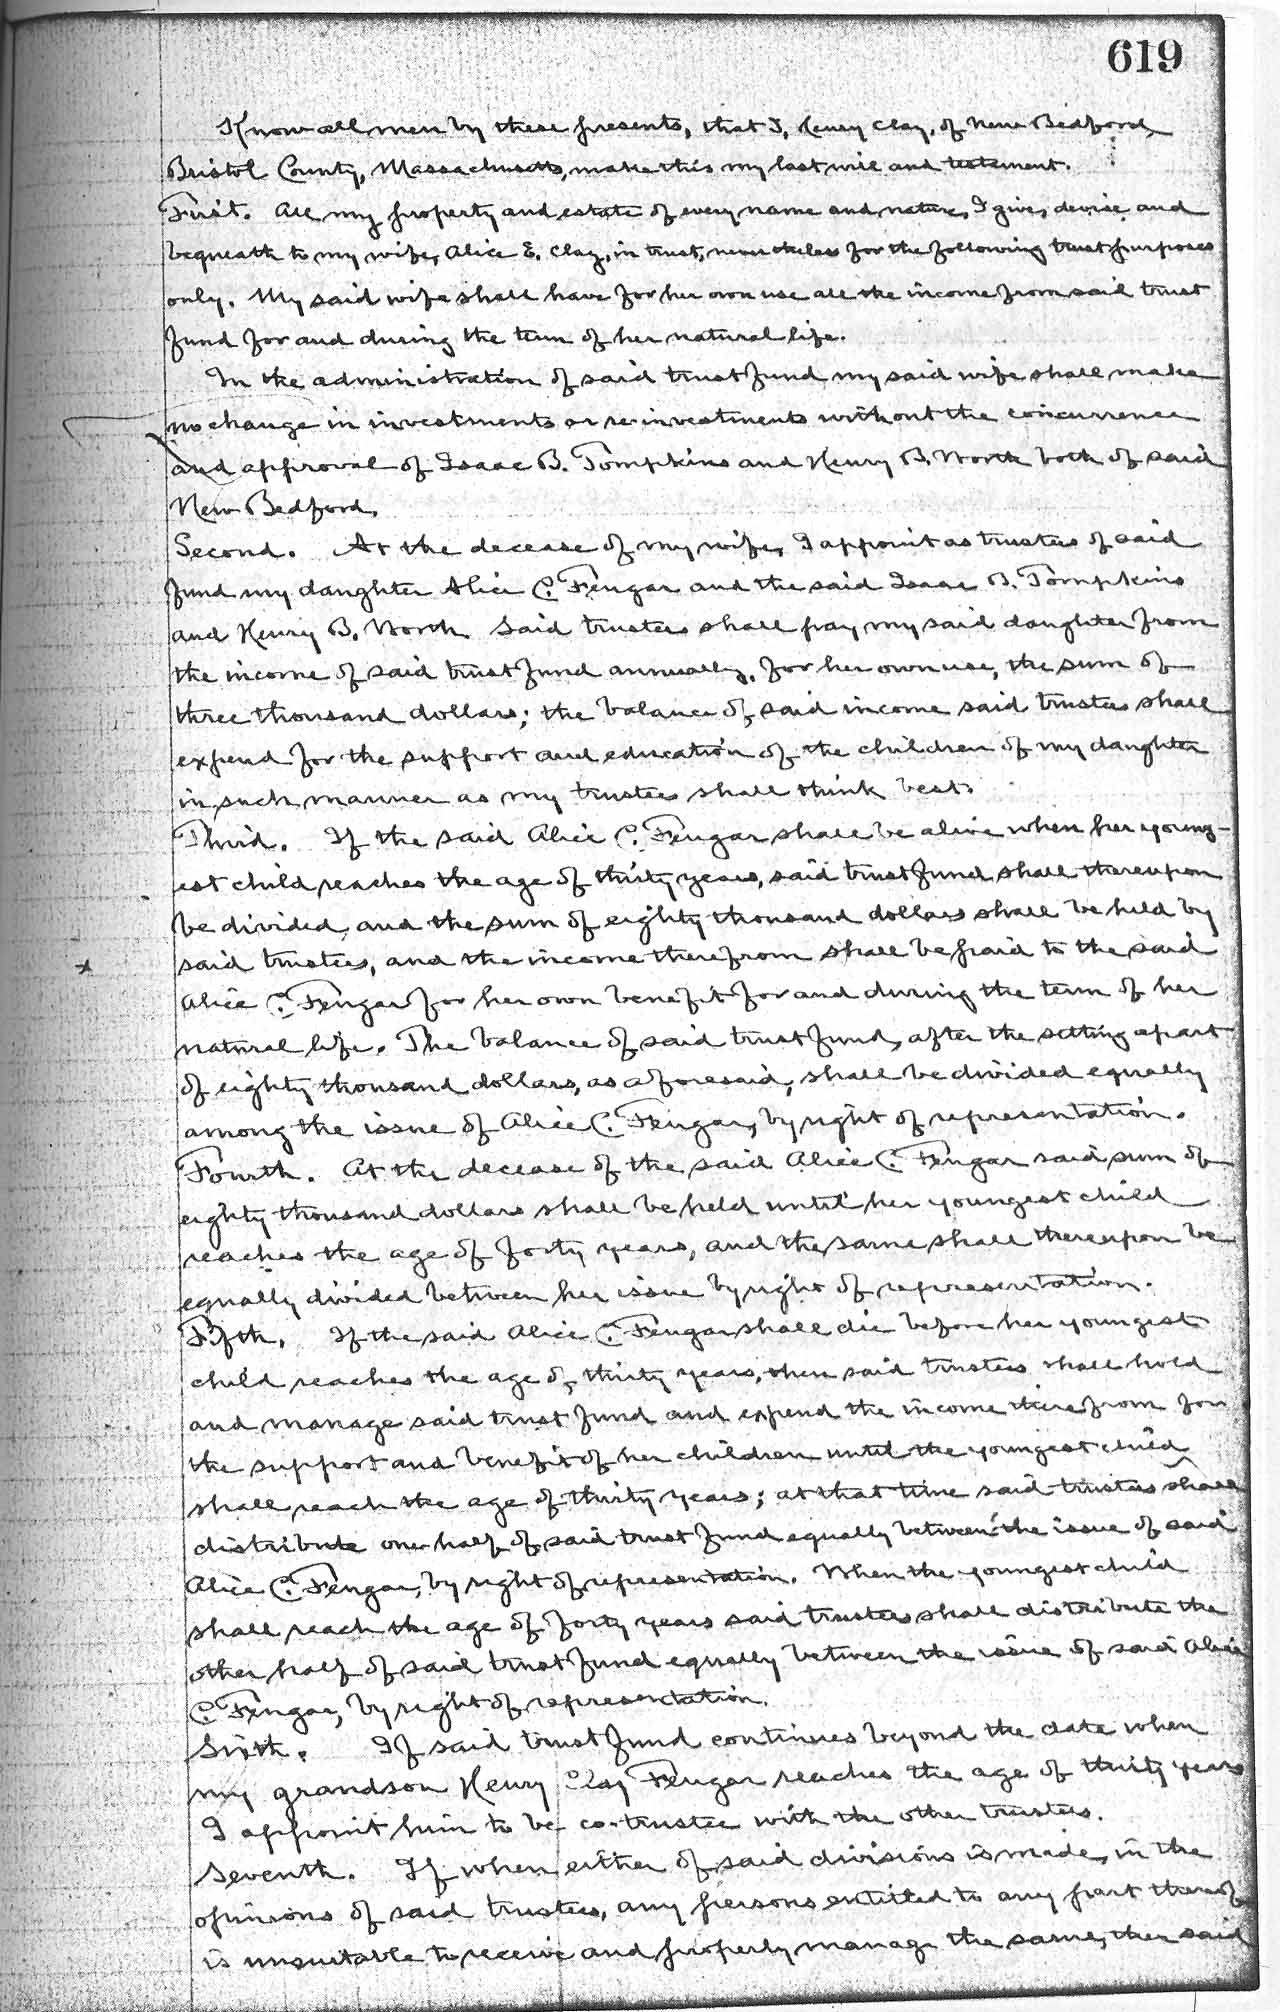 619
Know all men by these presents, that I, Henry Clay, of New Bedford,
Bristol County, Massachusetts, make this my last will and testament.
First. All my property and estate of every name and nature, I give, devise and
bequeath to my wife, Alice E. Clay, in trust, nevertheless for the following trust purposes
only. My said wife shall have for her own use all the income from said trust
fund for and during the term of her natural life.
In the administration of said trust fund my said wife shall make
no change in investments or re-investments without the concurrence
and approval of Isaac B. Tompkins and Henry B. Worth both of said
New Bedford.
Second. At the decease of my wife, I appoint as trustees of said
fund my daughter Alice C. Fengar and the said Isaac B. Tompkins
and Henry B. Worth. Said trustees shall pay my said daughter from
the income of said trust fund annually, for her own use, the sum of
three thousand dollars; the balance of said income said trustees shall
expend for the support and education of the children of my daughter
in such manner as my trustees shall think best.
Third. If the said Alice C. Fengar shall be alive when her young-
est child reaches the age of thirty years, said trust fund shall thereupon
be divided, and the sum of eighty thousand dollars shall be held by
said trustees, and the income therefrom shall be paid to the said
Alice C. Fengar for her own benefit for and during the term of her
natural life. The balance of said trust fund, after the setting apart
of eighty thousand dollars, as aforesaid, shall be divided equally
among the issue of Alice C. Fengar, by right of representation.
Fourth. At the decease of the said Alice C. Fengar said sum of
eighty thousand dollars shall be held until her youngest child
reaches the age of forty years, and the same shall thereupon be
equally divided between her issue by right of representation.
Fifth. If the said Alice C. Fengar shall die before her youngest
child reaches the age of thirty years, then said trustees shall hold
and manage said trust fund and expend the income therefrom for
the support and benefit of her children until the youngest child
shall reach the age of thirty years; at that time said trustees shall
distribute one half of said trust fund equally between the issue of said
Alice C. Fengar, by right of representation. When the youngest child
shall reach the age of forty years said trustees shall distribute the
other half of said trust fund equally between the issue of said Alice
C. Fengar, by right of representation.
Sixth. If said trust fund continues beyond the date when
my grandson Henry Clay Fengar reaches the age of thirty years
I appoint him to be co-trustee with the other trustees.
Seventh. If when either of said divisions is made, in the
opinions of said trustees, any persons entitled to any part thereof
is unsuitable to receive and properly manage the same, then said